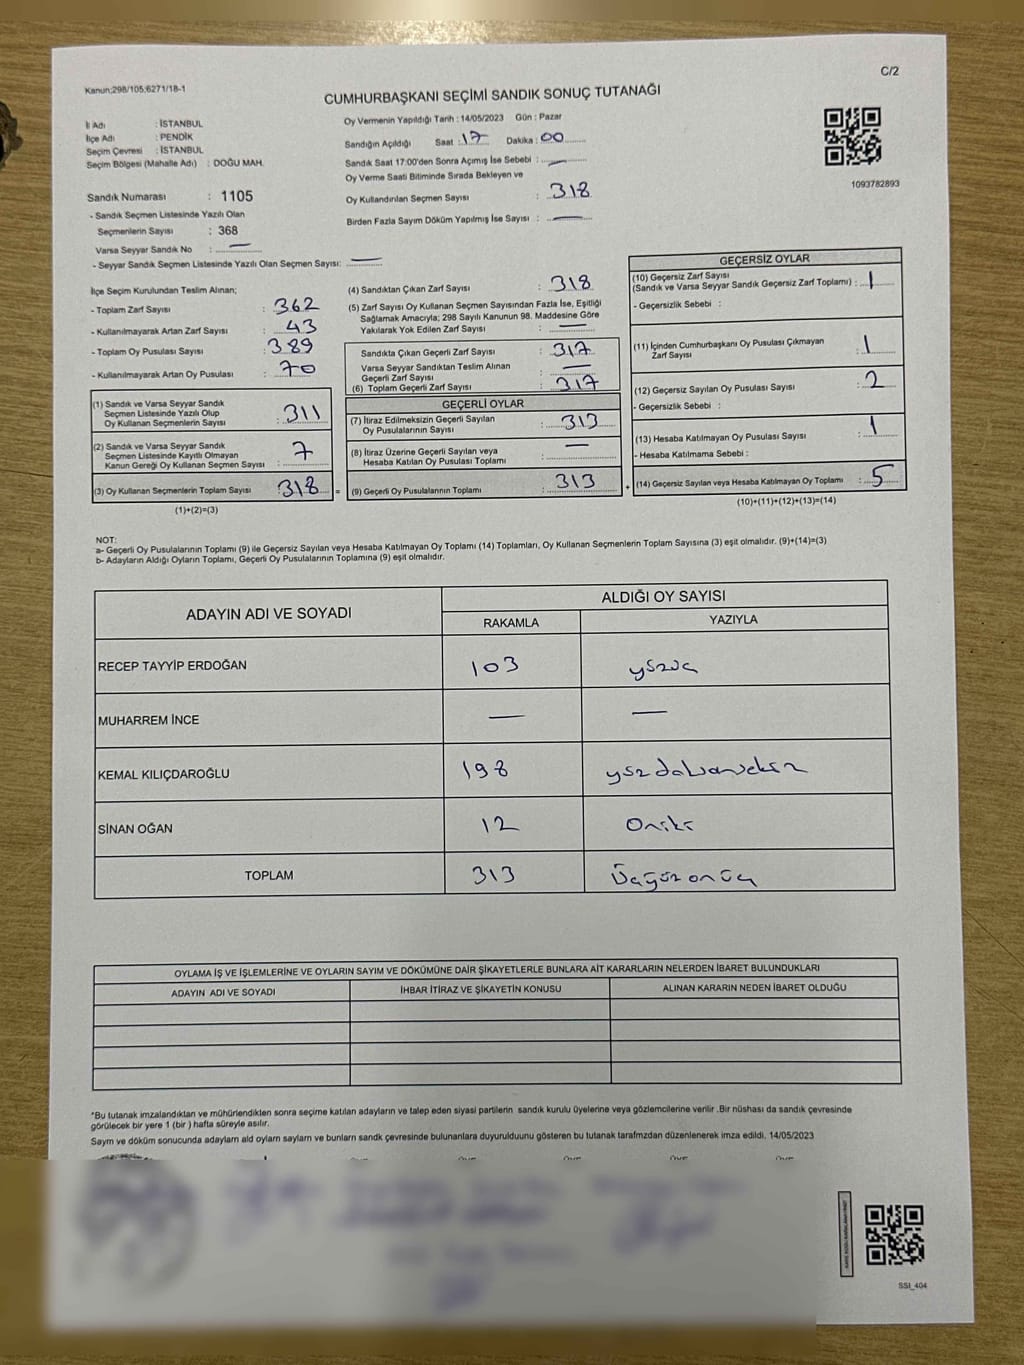 C/2
Kanun;298/105;6271/18-1
CUMHURBAŞKANI SEÇİMİ SANDIK SONUÇ TUTANAĞI
İl Adı : İSTANBUL
İlçe Adı : PENDİK
Seçim Çevresi : İSTANBUL
Seçim Bölgesi (Mahalle Adı) : DOĞU MAH.
Oy Vermenin Yapıldığı Tarih : 14/05/2023 Gün : Pazar
Sandığın Açıldığı Saat : 17 Dakika : 00
Sandık Saat 17:00'den Sonra Açımış İse Sebebi : —
Oy Verme Saati Bitiminde Sırada Bekleyen ve
Oy Kullandırılan Seçmen Sayısı : 318
Birden Fazla Sayım Döküm Yapılmış İse Sayısı : —
1093782893
Sandık Numarası : 1105
- Sandık Seçmen Listesinde Yazılı Olan
Seçmenlerin Sayısı : 368
Varsa Seyyar Sandık No : —
- Seyyar Sandık Seçmen Listesinde Yazılı Olan Seçmen Sayısı: —
İlçe Seçim Kurulundan Teslim Alınan;
- Toplam Zarf Sayısı : 362
- Kullanılmayarak Artan Zarf Sayısı : 43
- Toplam Oy Pusulası Sayısı : 389
- Kullanılmayarak Artan Oy Pusulası : 70
(1) Sandık ve Varsa Seyyar Sandık
Seçmen Listesinde Yazılı Olup
Oy Kullanan Seçmenlerin Sayısı : 311
(2) Sandık ve Varsa Seyyar Sandık
Seçmen Listesinde Kayıtlı Olmayan
Kanun Gereği Oy Kullanan Seçmen Sayısı : 7
(3) Oy Kullanan Seçmenlerin Toplam Sayısı : 318 =
(1)+(2)=(3)
(4) Sandıktan Çıkan Zarf Sayısı : 318
(5) Zarf Sayısı Oy Kullanan Seçmen Sayısından Fazla İse, Eşitliği
Sağlamak Amacıyla; 298 Sayılı Kanunun 98. Maddesine Göre
Yakılarak Yok Edilen Zarf Sayısı : —
Sandıkta Çıkan Geçerli Zarf Sayısı : 317
Varsa Seyyar Sandıktan Teslim Alınan
Geçerli Zarf Sayısı : —
(6) Toplam Geçerli Zarf Sayısı : 317
GEÇERLİ OYLAR
(7) İtiraz Edilmeksizin Geçerli Sayılan
Oy Pusulalarının Sayısı : 313
(8) İtiraz Üzerine Geçerli Sayılan veya
Hesaba Katılan Oy Pusulası Toplamı : —
(9) Geçerli Oy Pusulalarının Toplamı : 313 +
GEÇERSİZ OYLAR
(10) Geçersiz Zarf Sayısı
(Sandık ve Varsa Seyyar Sandık Geçersiz Zarf Toplamı) : 1
- Geçersizlik Sebebi :
(11) İçinden Cumhurbaşkanı Oy Pusulası Çıkmayan
Zarf Sayısı : 1
(12) Geçersiz Sayılan Oy Pusulası Sayısı : 2
- Geçersizlik Sebebi :
(13) Hesaba Katılmayan Oy Pusulası Sayısı : 1
- Hesaba Katılmama Sebebi :
(14) Geçersiz Sayılan veya Hesaba Katılmayan Oy Toplamı : 5
(10)+(11)+(12)+(13)=(14)
NOT:
a- Geçerli Oy Pusulalarının Toplamı (9) ile Geçersiz Sayılan veya Hesaba Katılmayan Oy Toplamı (14) Toplamları, Oy Kullanan Seçmenlerin Toplam Sayısına (3) eşit olmalıdır. (9)+(14)=(3)
b- Adayların Aldığı Oyların Toplamı, Geçerli Oy Pusulalarının Toplamına (9) eşit olmalıdır.
ADAYIN ADI VE SOYADI
ALDIĞI OY SAYISI
RAKAMLA YAZIYLA
RECEP TAYYİP ERDOĞAN 103 yüzüç
MUHARREM İNCE — —
KEMAL KILIÇDAROĞLU 198 yüzdoksansekiz
SİNAN OĞAN 12 Oniki
TOPLAM 313 Üçyüz onüç
OYLAMA İŞ VE İŞLEMLERİNE VE OYLARIN SAYIM VE DÖKÜMÜNE DAİR ŞİKAYETLERLE BUNLARA AİT KARARLARIN NELERDEN İBARET BULUNDUKLARI
ADAYIN ADI VE SOYADI İHBAR İTİRAZ VE ŞİKAYETİN KONUSU ALINAN KARARIN NEDEN İBARET OLDUĞU
*Bu tutanak imzalandıktan ve mühürlendikten sonra seçime katılan adayların ve talep eden siyasi partilerin sandık kurulu üyelerine veya gözlemcilerine verilir .Bir nüshası da sandık çevresinde
görülecek bir yere 1 (bir ) hafta süreyle asılır.
Saym ve döküm sonucunda adaylarn ald oylarn saylarn ve bunlarn sandk çevresinde bulunanlara duyurulduunu gösteren bu tutanak tarafmzdan düzenlenerek imza edildi. 14/05/2023
SSI_404